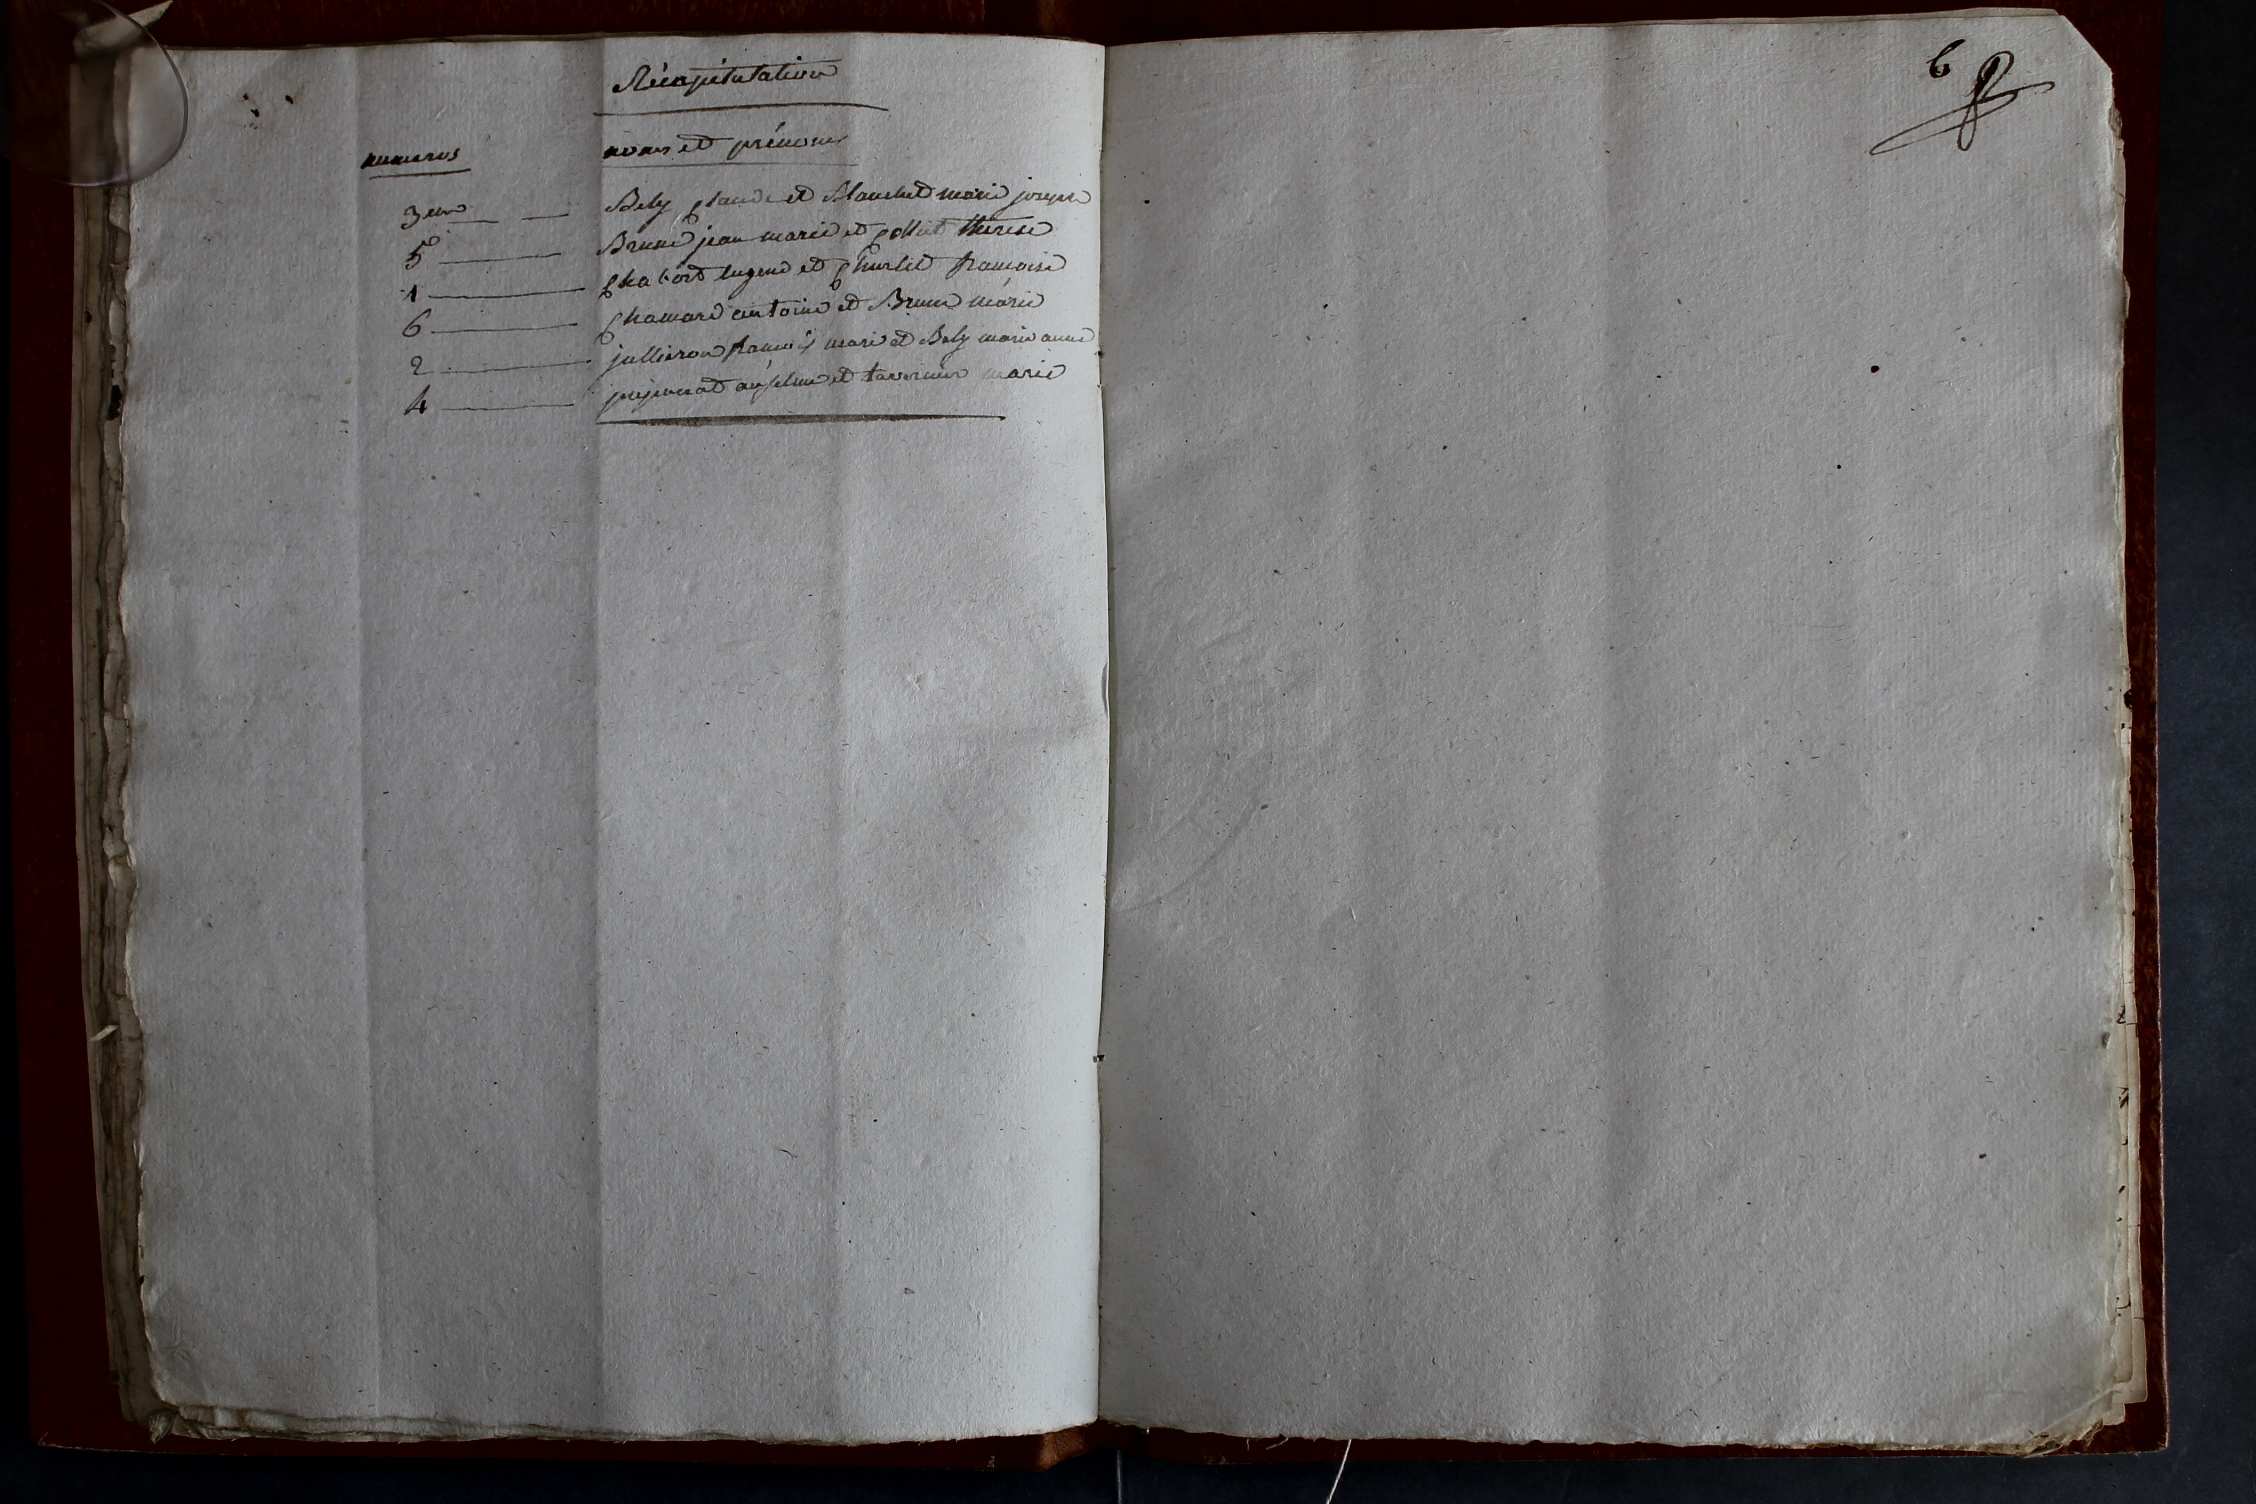 Récapitulation
numeros noms et prénoms
3eme Bely Claude et Blanchet marie joseph
5 Brune jean marie et Collet thérese
1 Chabord eugene et françoise
6 Chamard antoine et Brune marie
2 jullieron françois marie et Bely marie anne
4 anselme et tavernier marie
6